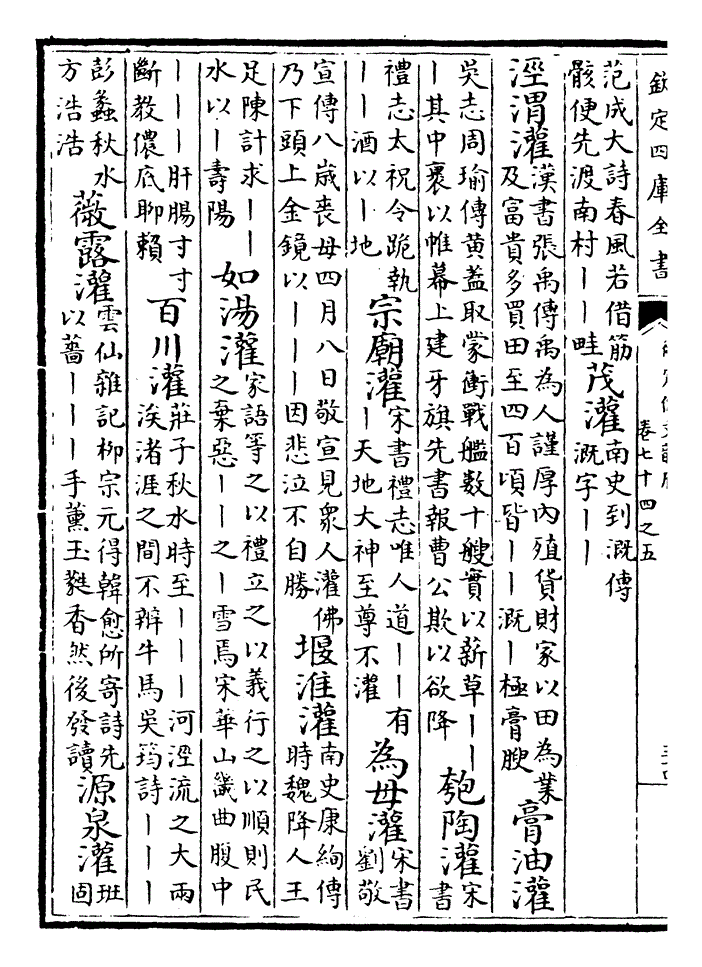 欽定四庫全書
卷七十四之五
范成大詩春風若借筋
骸便先渡南村丨丨畦
茂灌
南史到溉傳
溉字丨丨
涇渭灌
漢書張禹傳禹為人謹厚內殖貨財家以田為業
及富貴多買田至四百頃皆丨丨溉丨極膏腴
膏油灌
吳志周瑜傳黄葢取蒙衝戰艦數十艘實以薪草丨丨
丨其中裹以帷幕上建牙旗先書報曹公欺以欲降
匏陶灌
宋
書
禮志太祝令跪執
丨丨酒以丨地
宗廟灌
宋書禮志唯人道丨丨有
丨天地大神至尊不灌
為母灌
宋書
劉敬
宣傳八歳喪母四月八日敬宣見衆人灌佛
乃下頭上金鏡以丨丨丨因悲泣不自勝
堰淮灌
南史康絢傳
時魏降人王
足陳計求丨丨
水以丨壽陽
如湯灌
家語等之以禮立之以義行之以順則民
之棄惡丨丨之丨雪焉宋華山畿曲腹中
丨丨丨肝腸寸寸
斷教儂底聊賴
百川灌
莊子秋水時至丨丨丨河涇流之大兩
涘渚涯之間不辨牛馬吳筠詩丨丨丨
彭蠡秋水
方浩浩
薇露灌
雲仙雜記柳宗元得韓愈所寄詩先
以薔丨丨丨手薰玉蕤香然後發讀
源泉灌
班
固